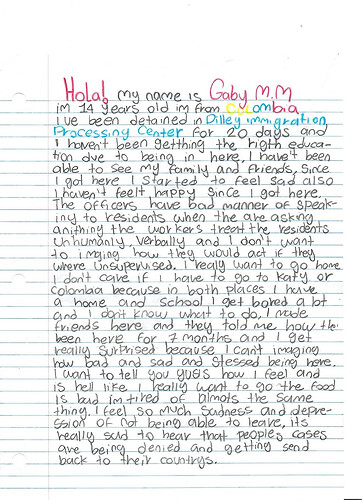 Hola! my name is Gaby M.M
im 14 years old im from Colombia
I've been detained in Dilley immigration
Processing Center for 20 days and
I haven't been getthing the higth educa-
tion due to being in here, I have't been
able to see my family and friends, since
I got here I started to feel sad also
I haven't feelt happy since I got here.
The officers have bad manner of speak-
iny to residents when the are asking
anithing the workers treat the residents
unhumanly, verbally and I don't want
to imging how they would act if they
where unsupervised. I really want to go home
I don't care if I have to go to Katy or
Colombia because in both places I have
a home and school I get bored a lot
and I don't know what to do, I made
friends here and they told me how the
been here for 7 months and I get
really surprised because I can't imaging
how bad and sad and stessed being here.
I want to tell you guys how I feel and
is hell like I really want to go the food
is bad im tired of almots the same
thing. I feel so much sadness and depre-
ssion of not being able to leave, its
really sad to hear that peoples cases
are being denied and getting send
back to their countrys.